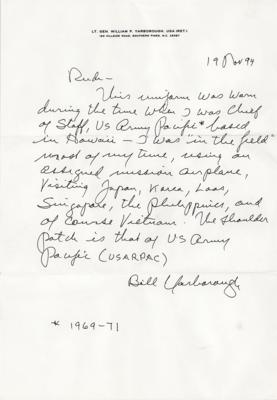 LT. GEN. WILLIAM P. YARBOROUGH, USA (RET.)
160 HILLSIDE ROAD, SOUTHERN PINES, N.C. 28387
19 Nov 94
Rudi –
This uniform was worn
during the time when I was Chief
of Staff, US Army Pacific* based
in Hawaii – I was "in the field"
most of my time, using an
assigned mission airplane,
Visiting Japan, Korea, Laos,
Singapore, the Philippines, and
of course Vietnam. The shoulder
patch is that of US Army
Pacific (USARPAC)
Bill Yarborough
* 1969-71